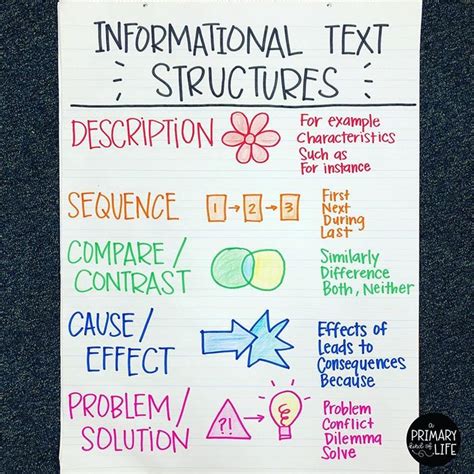 INFORMATIONAL TEXT
STRUCTURES
DESCRIPTION
For example
Characteristics
Such as
For instance
SEQUENCE
1 → 2 → 3
First
Next
During
Last
COMPARE /
CONTRAST
Similarly
Difference
Both, Neither
CAUSE /
EFFECT
Effects of
Leads to
Consequences
Because
PROBLEM /
SOLUTION
?!
Problem
Conflict
Dilemma
Solve
a
PRIMARY
kind of
LIFE